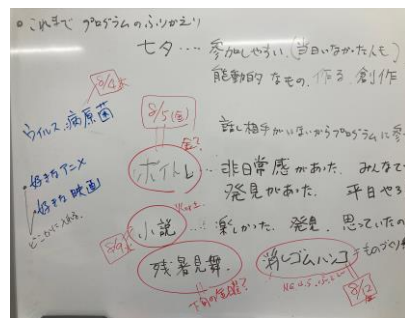 ○これまで プログラムのふりかえり
七夕…. 参加しやすい、(当日いなかった人も)
能動的なもの、作る 創作
8/4
ウイルス、病原菌
8/5(金)
話し相手がいないからプログラムに参
金?
ボイトレ … 非日常感があった. みんなで
発見があった. 平日やる
・好きなアニメ
・好きな映画
どこかに入れる.
8/9
小説 … 楽しかった. 発見. 思っていたの
残暑見舞.
消しゴムハンコ
ものづくり
8/12